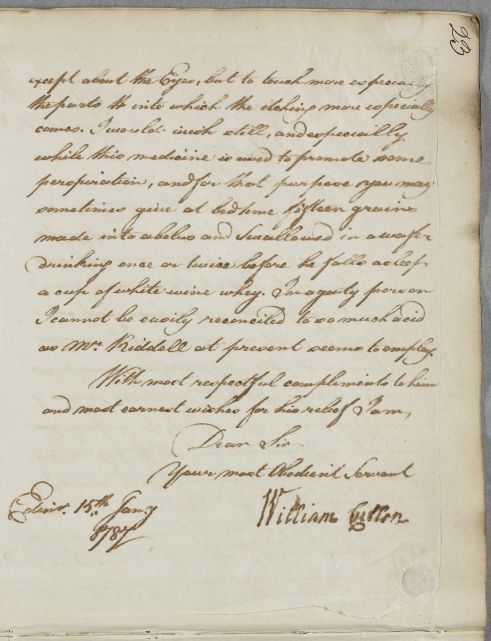 23
except about the Eyes, but to touch more especially
the parts to into which the itching more especially
comes. I would wish still, and especially
while this medicine is used to promote some
perspiration, and for that purpose you may
sometimes give at bedtime fifteen grains
made into a bolus and Swallowed in a wafer
drinking once or twice before he falls asleep
a cup of white wine whey. In a gouty person
I cannot be easily reconciled to so much acid
as Mr. Riddell at present seems to employ.
With most respectful compliments to him
and most earnest wishes for his relief I am,
Dear Sir
Your most Obedient Servant
William Cullen
Edinr. 15th Jany